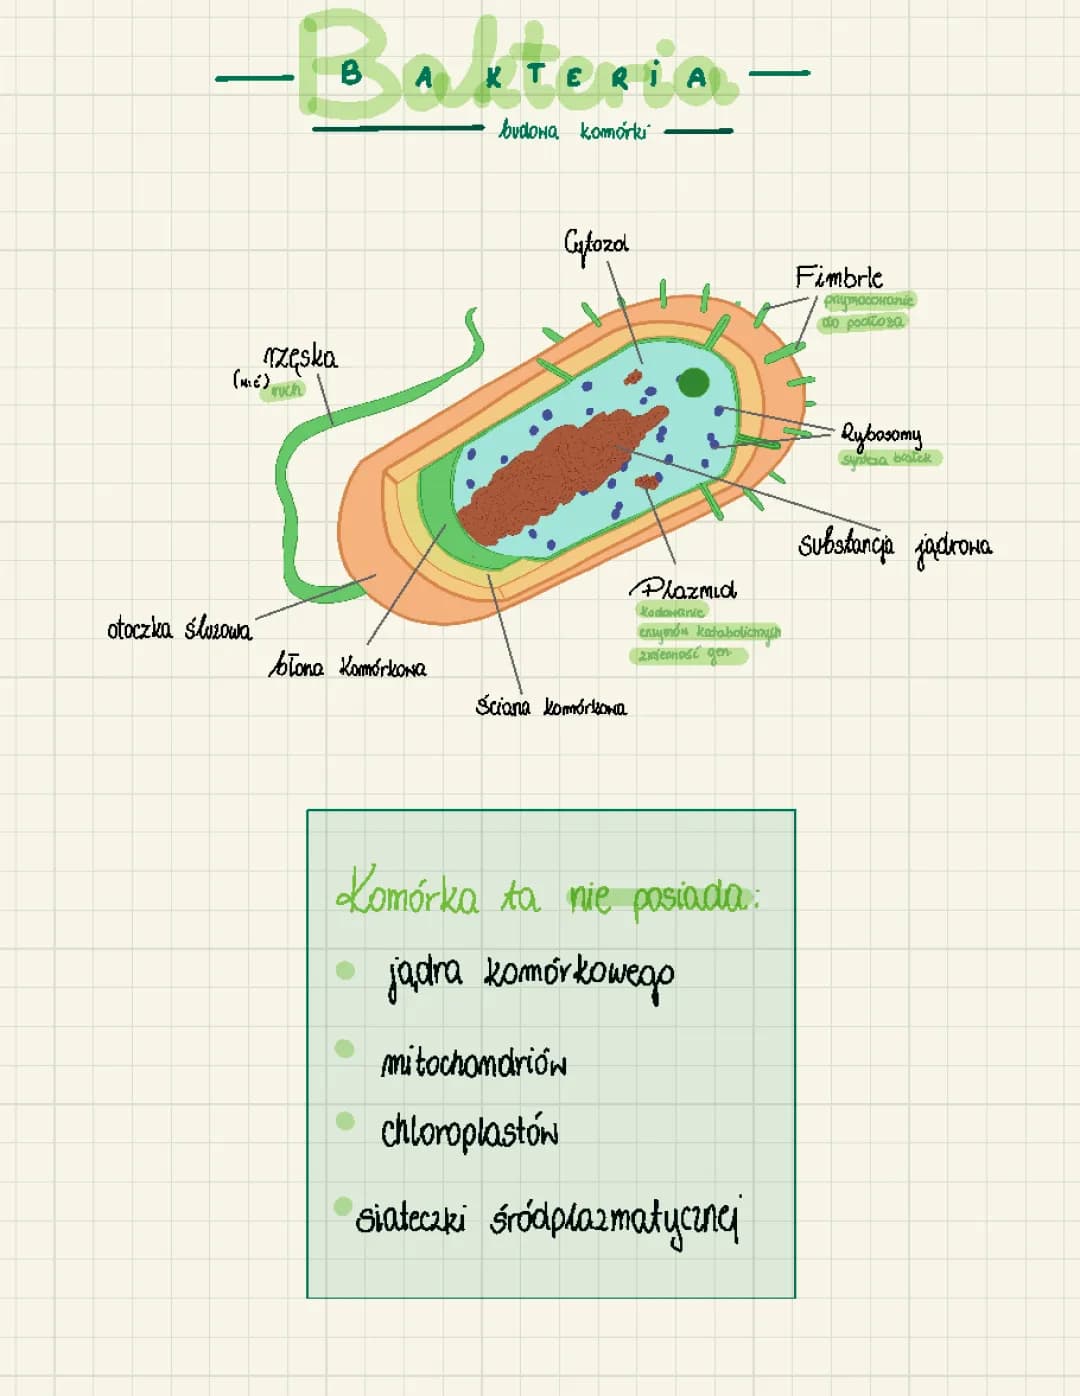 Bakteria
BAKTERiA
budowa komórki
Cytozol
Fimbrie
przymocowanie
do podłoża
rzęska
(nić) ruch
Rybosomy
synteza białek
Substancja jądrowa
Plazmid
kodowanie
enzymów katabolicznych
zmienność gen.
otoczka śluzowa
błona komórkowa
ściana komórkowa
Komórka ta nie posiada:
jądra komórkowego
mitochondriów
chloroplastów
siateczki śródplazmatycznej